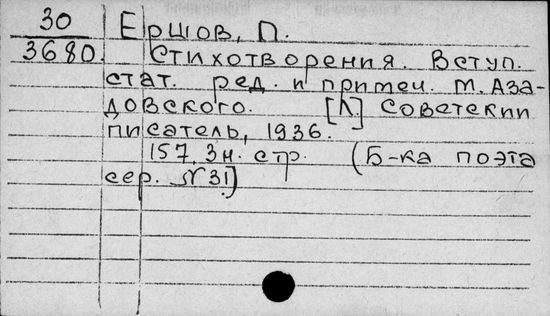 30
3680.
Ершов, П.
Стихотворения. Вступ.
стат. ред. и примеч. М. Аза-
довского. [Л.] Советский
писатель, 1936.
157, 3 н. стр. (Б-ка поэта
сер. №31)